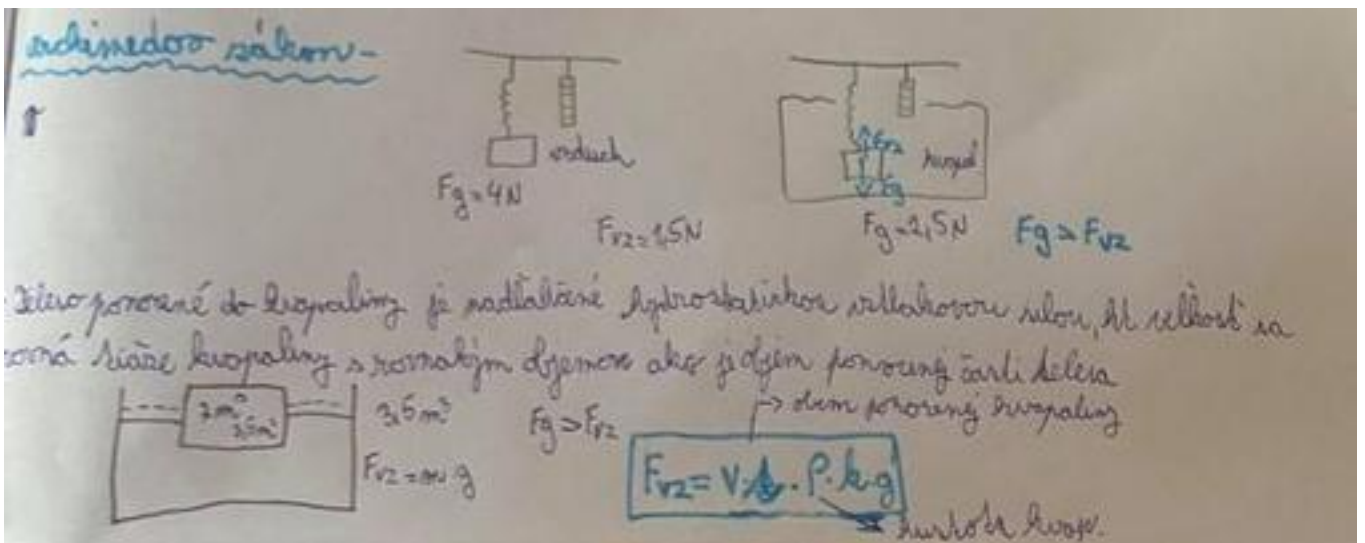 archimedov zákon -
vzduch
Fg = 4N
Fvz = 1,5N
Fvz
Fg
kvapal
Fg = 2,5N
Fg > Fvz
Teleso ponorené do kvapaliny je nadľahčené hydrostatickou vztlakovou silou, kt veľkosť sa
rovná tiaže kvapaliny s rovnakým objemom ako je objem ponorenej časti telesa
3,5m³
Fg > Fvz
Fvz = m g
objem ponorenej kvapaliny
Fvz = V . ρ . k . g
hustota kvap.